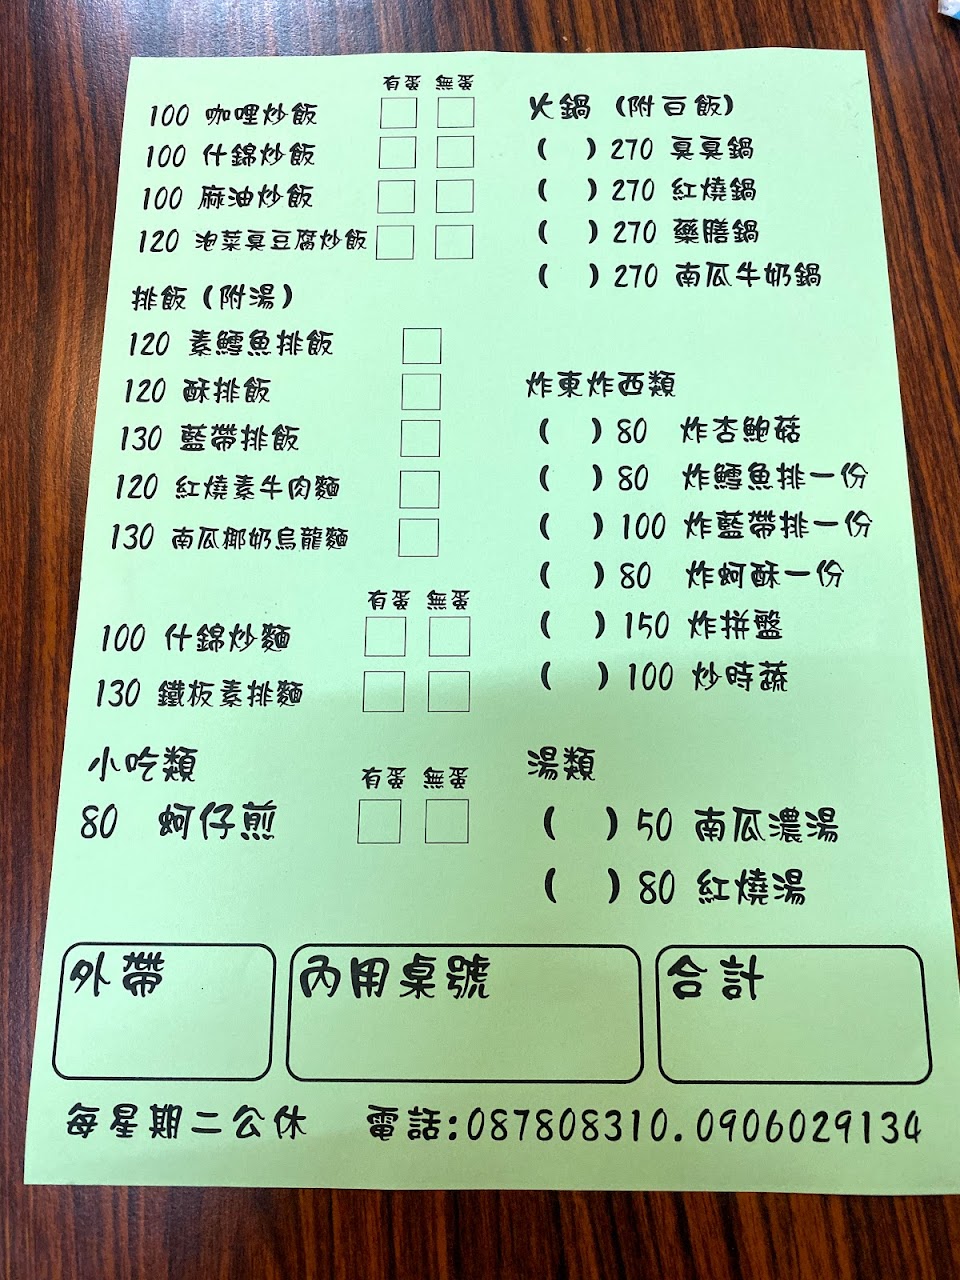 有蛋 無蛋
100 咖哩炒飯
100 什錦炒飯
100 麻油炒飯
120 泡菜臭豆腐炒飯
排飯(附湯)
120 素鱈魚排飯
120 酥排飯
130 藍帶排飯
120 紅燒素牛肉麵
130 南瓜椰奶烏龍麵
有蛋 無蛋
100 什錦炒麵
130 鐵板素排麵
小吃類
有蛋 無蛋
80 蚵仔煎
火鍋 (附白飯)
( )270 臭臭鍋
( )270 紅燒鍋
( )270 藥膳鍋
( )270 南瓜牛奶鍋
炸東炸西類
( )80 炸杏鮑菇
( )80 炸鱈魚排一份
( )100 炸藍帶排一份
( )80 炸蚵酥一份
( )150 炸拼盤
( )100 炒時蔬
湯類
( )50 南瓜濃湯
( )80 紅燒湯
外帶
內用桌號
合計
每星期二公休 電話:087808310.0906029134